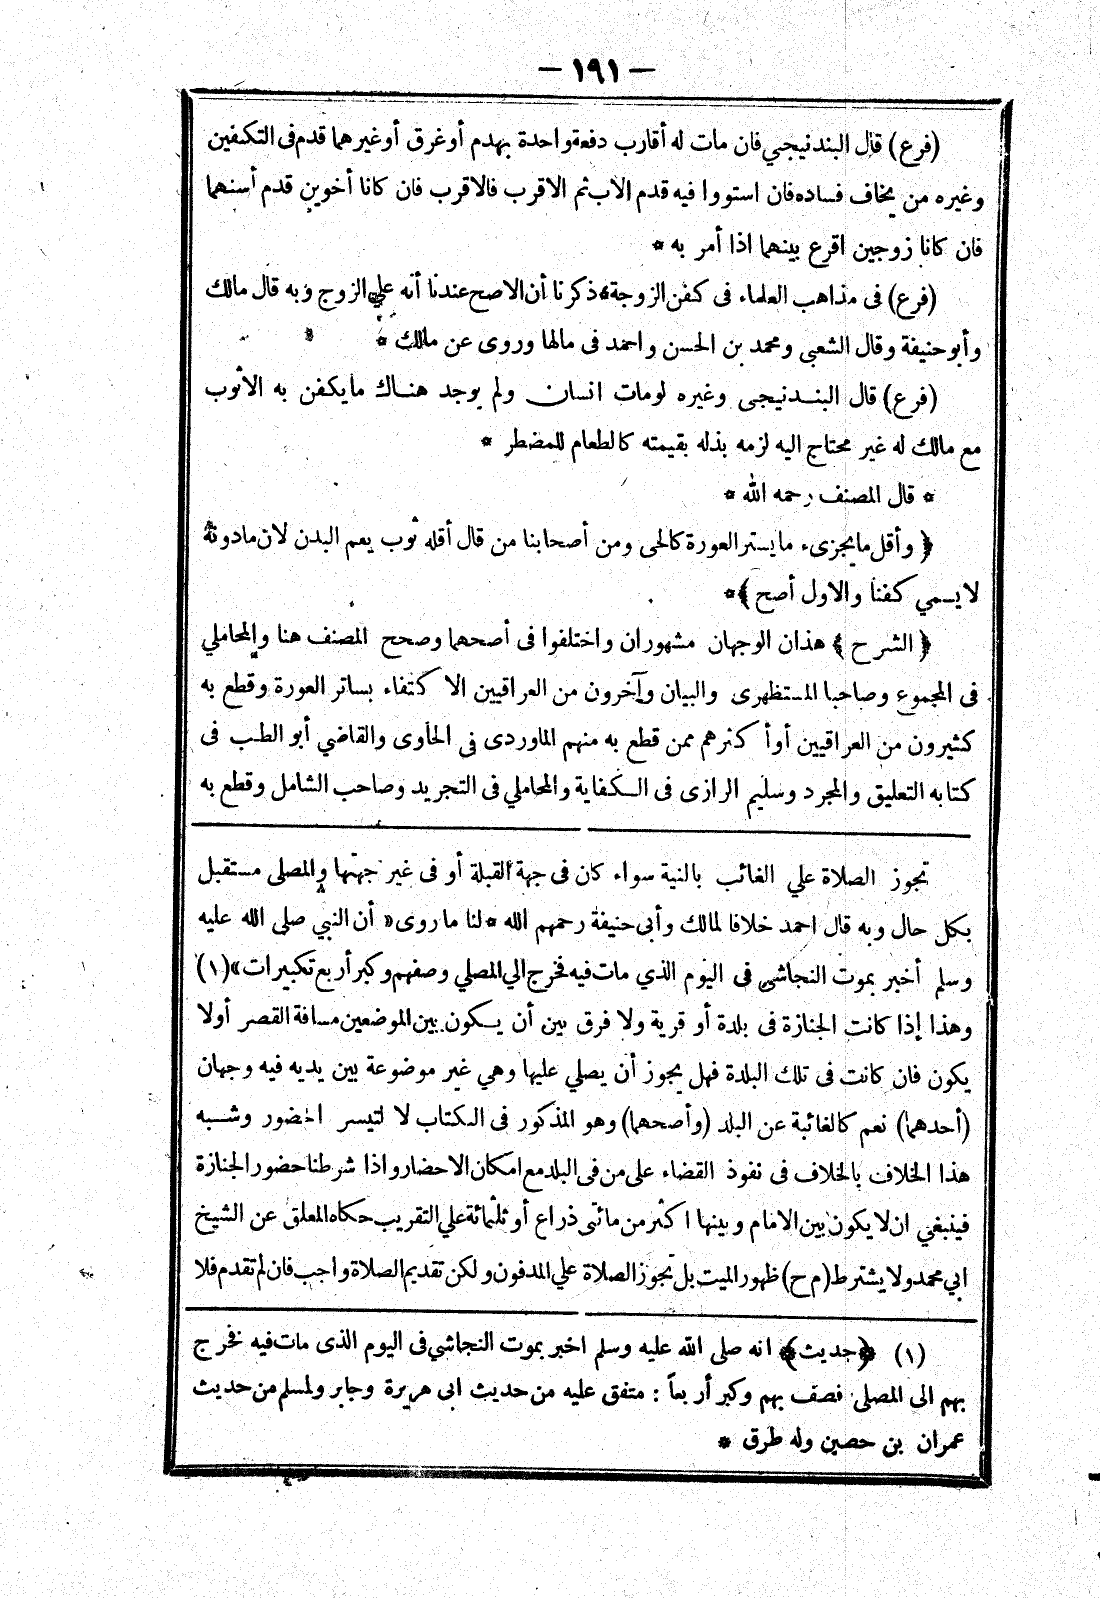 — ١٩١ —
(فرع) قال البندنيجي فان مات له أقارب دفعة واحدة بهدم أو غرق أو غيرهما قدم فى التكفين
وغيره من يخاف فساده فان استووا فيه قدم الأب ثم الاقرب فالاقرب فان كانا أخوين قدم أسنهما
فان كانا زوجين اقرع بينهما اذا أمر به *
(فرع) فى مذاهب العلماء فى كفن الزوجة * ذكرنا أن الاصح عندنا أنه علي الزوج وبه قال مالك
وأبو حنيفة وقال الشعبي ومحمد بن الحسن واحمد فى مالها وروى عن مالك *
(فرع) قال البندنيجى وغيره لو مات انسان ولم يوجد هناك ما يكفن به الا ثوب
مع مالك له غير محتاج اليه لزمه بذله بقيمته كالطعام للمضطر *
* قال المصنف رحمه الله *
﴿ وأقل ما يجزىء ما يستر العورة كالحى ومن أصحابنا من قال أقله ثوب يعم البدن لان ما دونه
لا يسمي كفنا والاول أصح ﴾ *
﴿ الشرح ﴾ هذان الوجهان مشهوران واختلفوا فى أصحهما وصحح المصنف هنا والمحاملي
فى المجموع وصاحبا المستظهرى والبيان وآخرون من العراقيين الا كتفاء بساتر العورة وقطع به
كثيرون من العراقيين أو أكثرهم ممن قطع به منهم الماوردى فى الحاوى والقاضي أبو الطب فى
كتابه التعليق والمجرد وسليم الرازى فى الكفاية والمحاملي فى التجريد وصاحب الشامل وقطع به
تجوز الصلاة علي الغائب بالنية سواء كان فى جهة القبلة أو فى غير جهتها والمصلى مستقبل
بكل حال وبه قال احمد خلافا لمالك وأبى حنيفة رحمهم الله * لنا ما روى « أن النبي صلى الله عليه
وسلم أخبر بموت النجاشى فى اليوم الذي مات فيه فخرج الي المصلي وصفهم وكبر أربع تكبيرات » (١)
وهذا إذا كانت الجنازة فى بلدة أو قرية ولا فرق بين أن يكون بين الموضعين مسافة القصر أو لا
يكون فان كانت فى تلك البلدة فهل يجوز أن يصلي عليها وهي غير موضوعة بين يديه فيه وجهان
(أحدهما) نعم كالغائبة عن البلد (وأصحهما) وهو المذكور فى الكتاب لا لتيسر الحضور وشبه
هذا الخلاف بالخلاف فى نفوذ القضاء على من فى البلد مع امكان الاحضار واذا شرطنا حضور الجنازة
فينبغي ان لا يكون بين الامام وبينها اكثر من مائتى ذراع أو ثلثمائة علي التقريب حكاه المعلق عن الشيخ
ابي محمد ولا يشترط (م ح) ظهور الميت بل تجوز الصلاة علي المدفون ولكن تقديم الصلاة واجب فان لم تقدم فلا
(١) ﴿حديث﴾ انه صلى الله عليه وسلم اخبر بموت النجاشي فى اليوم الذى مات فيه فخرج
بهم الى المصلى فصف بهم وكبر أربعاً : متفق عليه من حديث ابى هريرة وجابر ولمسلم من حديث
عمران بن حصين وله طرق *